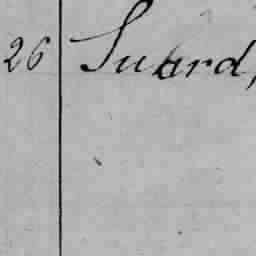 26 Suard,